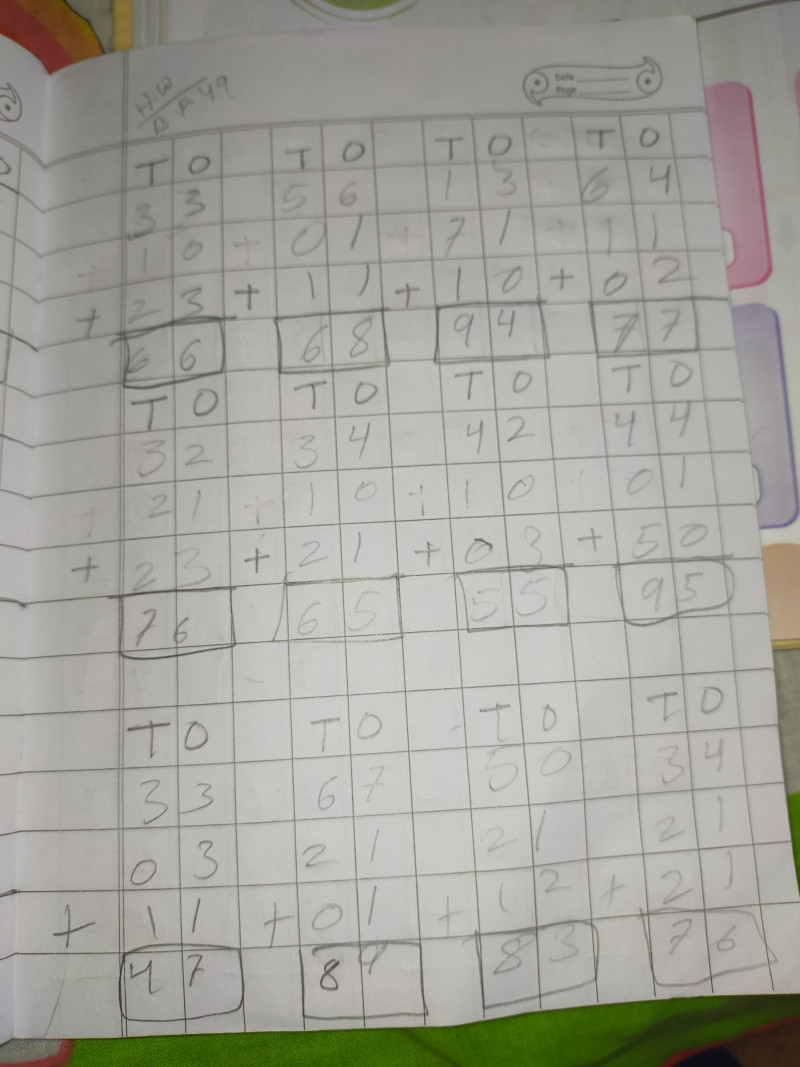 H.W
B P.49
Date
Page
T O T O T O T O
33 56 13 64
+ 10 + 01 + 71 + 11
+ 23 + 11 + 10 + 02
66 68 94 77
T O T O T O T O
32 34 42 44
+ 21 + 10 + 10 + 01
+ 23 + 21 + 03 + 50
76 65 55 95
T O T O T O T O
33 67 50 34
03 21 21 21
+ 11 + 01 + 12 + 21
47 89 83 76